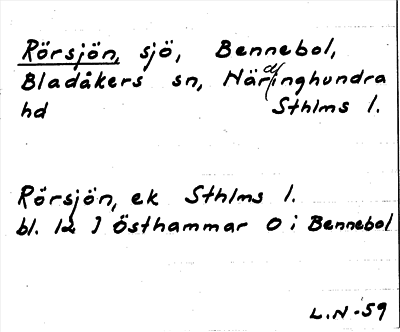 Rörsjön, sjö, Bennebol,
Bladåkers sn, Närdinghundra
hd Sthlms l.
Rörsjön, ek Sthlms l.
bl. 12 J Östhammar O i Bennebol
L.N-59